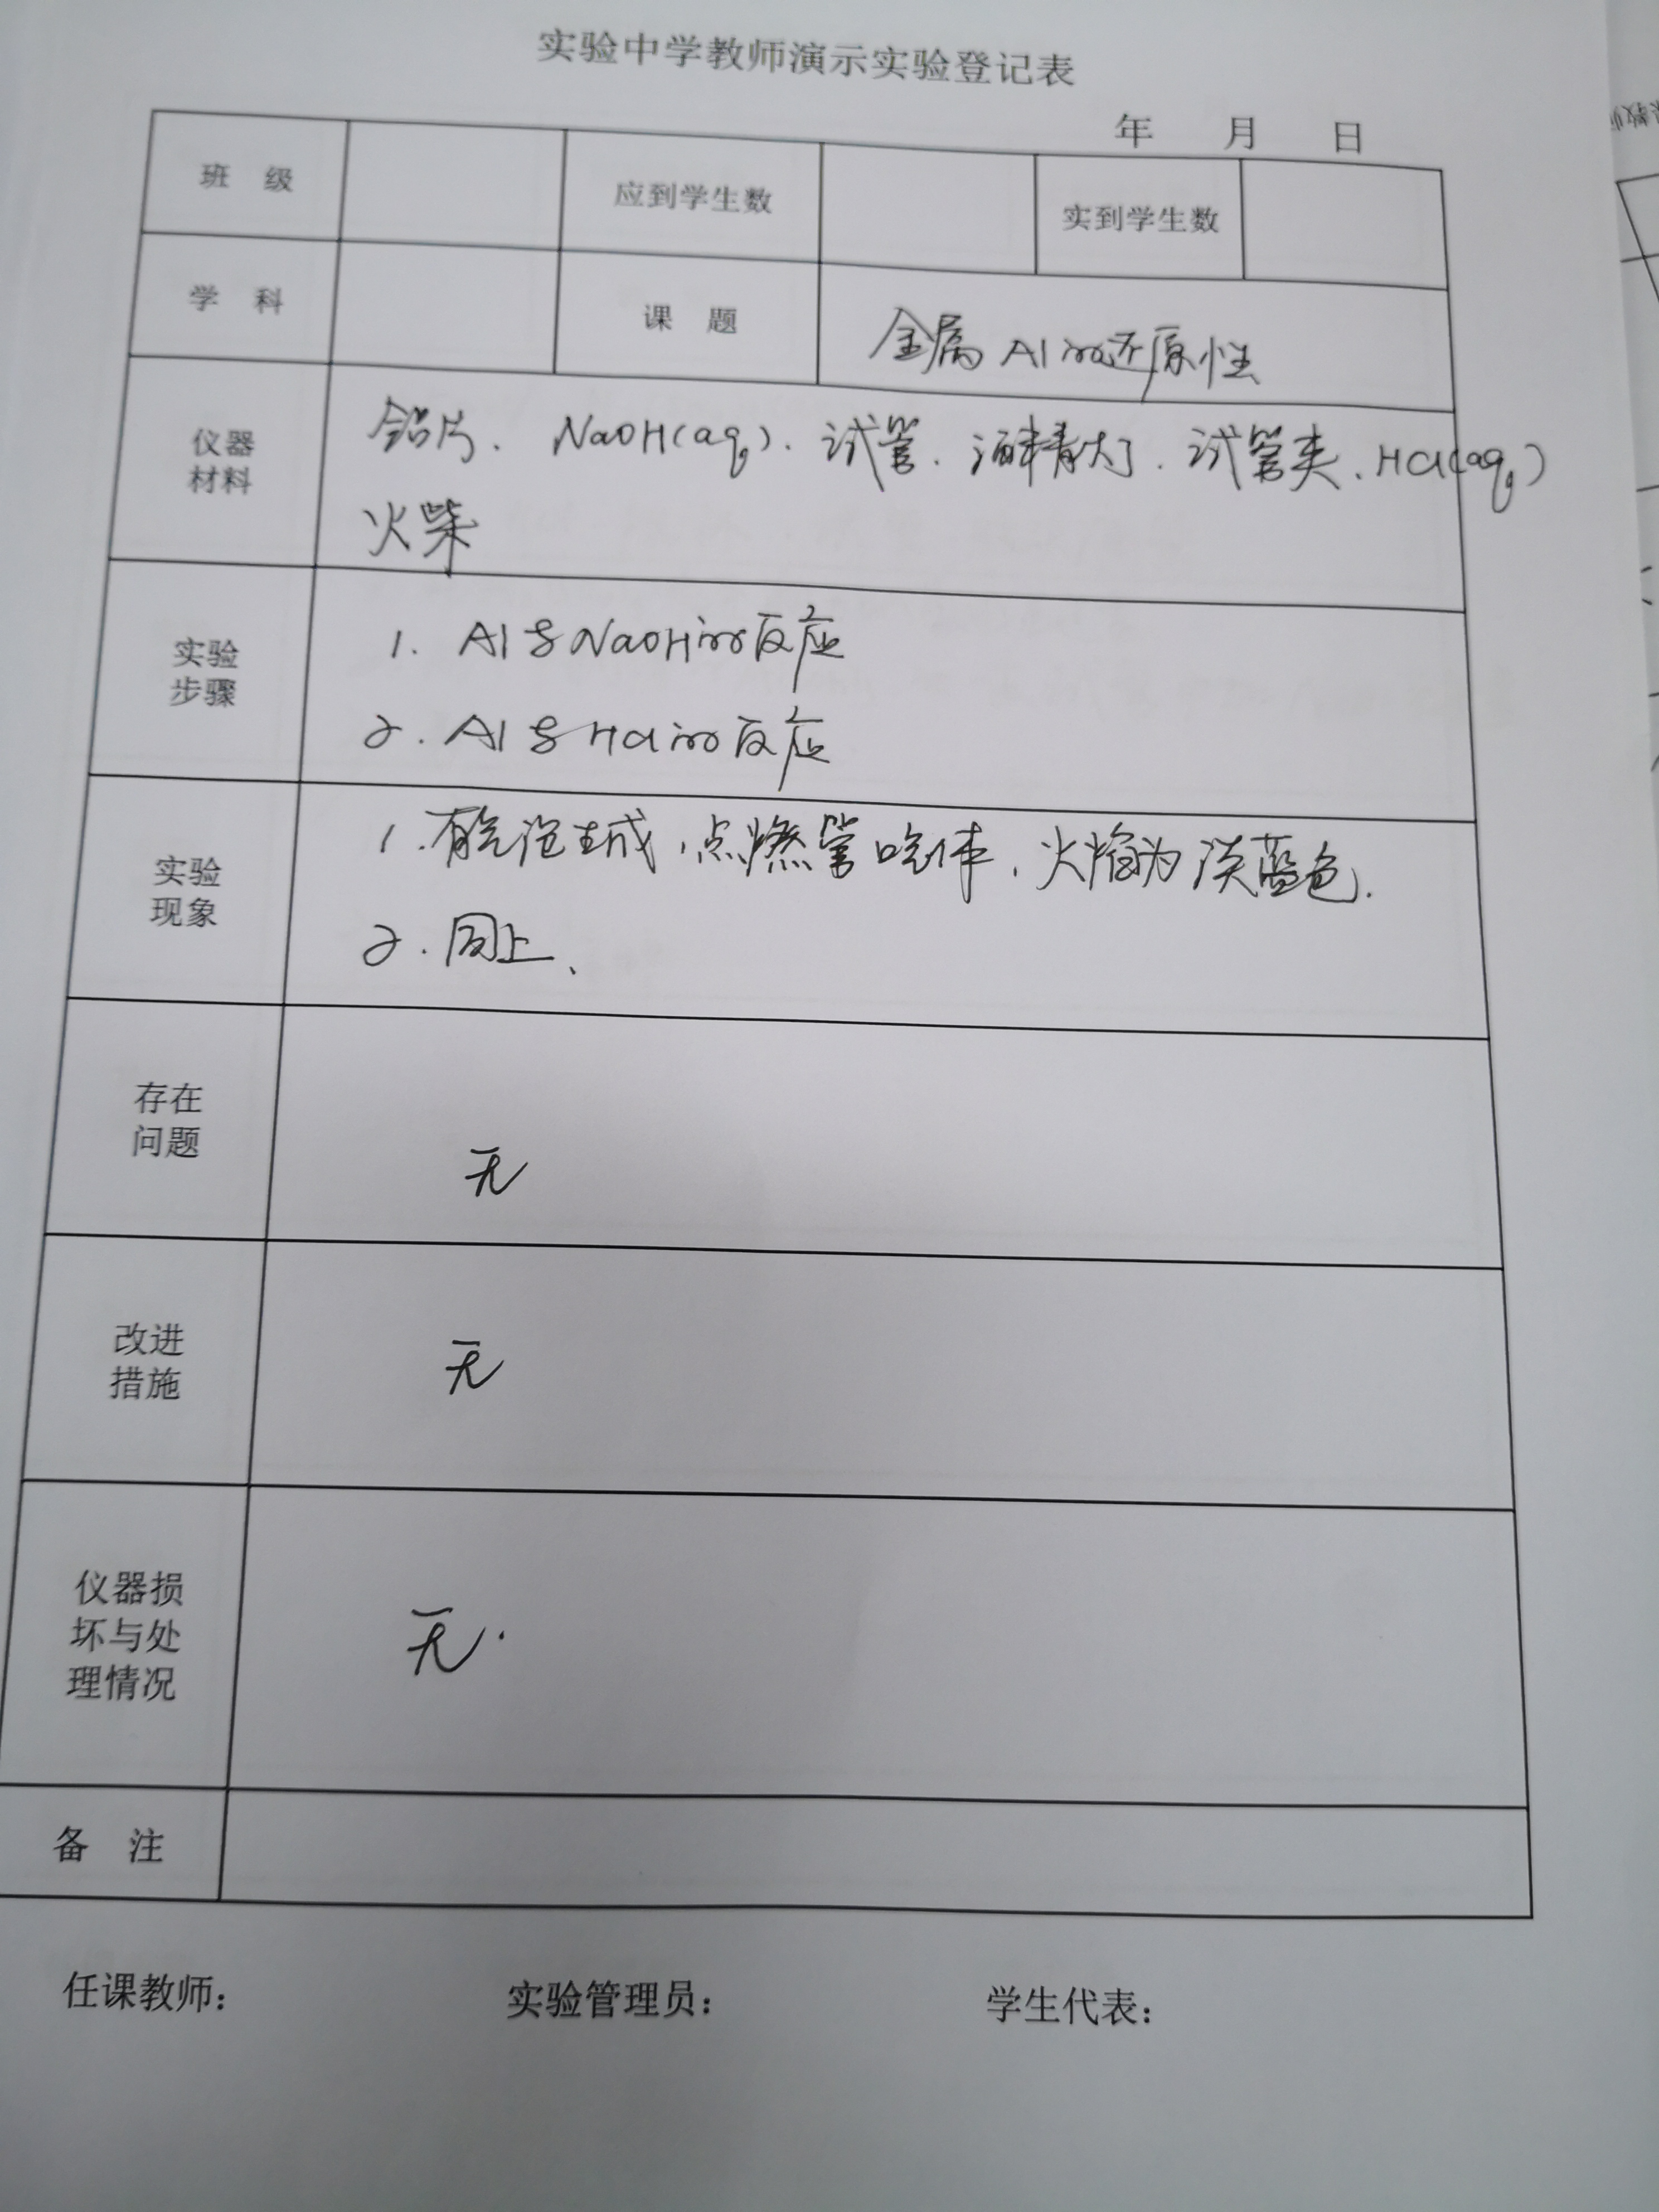 实验中学教师演示实验登记表
年 月 日
班 级 应到学生数 实到学生数
学 科 课 题 金属Al的还原性
仪器材料 铝片、NaOH(aq)、试管、酒精灯、试管夹、HCl(aq)
火柴
实验步骤 1. Al与NaOH的反应
2. Al与HCl的反应
实验现象 1.有气泡生成,点燃管口气体,火焰为淡蓝色.
2.同上、
存在问题 无
改进措施 无
仪器损坏与处理情况 无.
备 注
任课教师: 实验管理员: 学生代表: